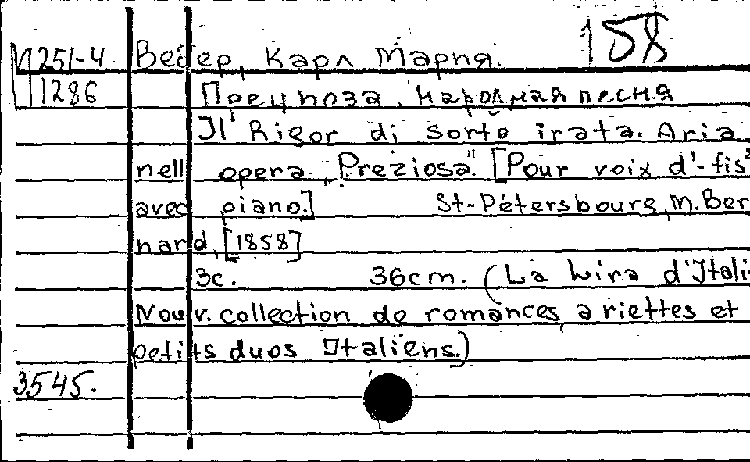 158
М251-4 Вебер, Карл Мария.
11286 Прециоза. Народная песня
Il Rigor di sorte irata. Aria
nell opera „Preziosa" [Pour voix d'-fis
avec piano.] St-Pétersbourg, M. Ber
nard, [1858]
3с. 36cm. (La Lira d'Itali
Nouv. collection de romances, ariettes et
petits duos Italiens.)
3545.